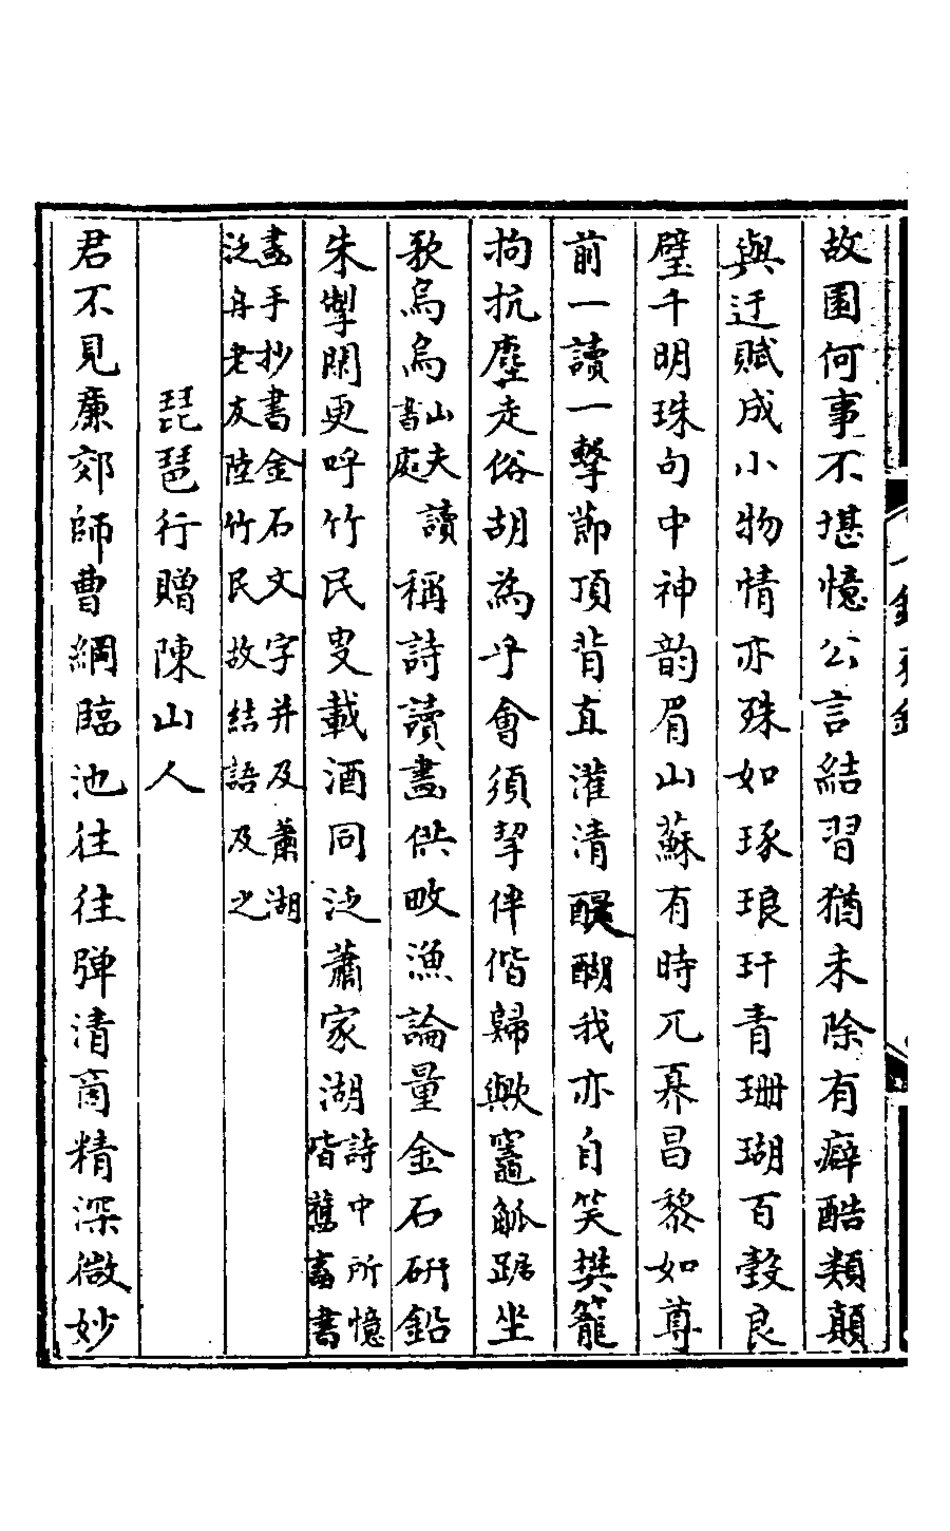 故園何事不堪憶公言結習猶未除有癖酷類顛
與迂賦成小物情亦殊如琢琅玕青珊瑚百瑴良
璧千明珠句中神韵眉山蘇有時兀奡昌黎如尊
前一讀一擊節頂背直灌清醍醐我亦自笑樊籠
拘抗塵走俗胡為乎會須挈伴偕歸歟竈觚踞坐
歌烏烏山夫讀書處讀稱詩讀畫供畋漁論量金石研鉛
朱掣關更呼竹民叟載酒同泛蕭家湖詩中所憶皆舊畜書
畫手抄書金石文字并及蕭湖
泛舟老友陸竹民故結語及之
琵琶行贈陳山人
君不見廉郊師曹綱臨池往往彈清商精深微妙